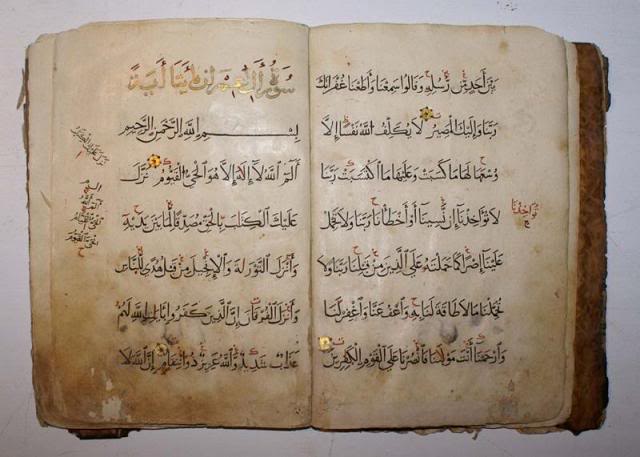 بَيْنَ أَحَدٍ مِّن رُّسُلِهِ وَقَالُوا سَمِعْنَا وَأَطَعْنَا غُفْرَانَكَ
رَبَّنَا وَإِلَيْكَ الْمَصِيرُ لَا يُكَلِّفُ اللَّهُ نَفْسًا إِلَّا
وُسْعَهَا لَهَا مَا كَسَبَتْ وَعَلَيْهَا مَا اكْتَسَبَتْ رَبَّنَا
لَا تُوَاخِذْنَا إِن نَّسِينَا أَوْ أَخْطَأْنَا رَبَّنَا وَلَا تَحْمِلْ
عَلَيْنَا إِصْرًا كَمَا حَمَلْتَهُ عَلَى الَّذِينَ مِن قَبْلِنَا رَبَّنَا وَلَا
تُحَمِّلْنَا مَا لَا طَاقَةَ لَنَا بِهِ وَاعْفُ عَنَّا وَاغْفِرْ لَنَا
وَارْحَمْنَا أَنتَ مَوْلَانَا فَانصُرْنَا عَلَى الْقَوْمِ الْكَٰفِرِينَ
تُوَاخِذْنَا
سُورَةُ آلِ عِمْرَانَ مِايَتَا آيَةً
بِسْمِ اللَّهِ الرَّحْمَٰنِ الرَّحِيمِ
الم اللَّهُ لَا إِلَٰهَ إِلَّا هُوَ الْحَيُّ الْقَيُّومُ نَزَّلَ
عَلَيْكَ الْكِتَابَ بِالْحَقِّ مُصَدِّقًا لِّمَا بَيْنَ يَدَيْهِ
وَأَنزَلَ التَّوْرَاةَ وَالْإِنجِيلَ مِن قَبْلُ هُدًى لِّلنَّاسِ
وَأَنزَلَ الْفُرْقَانَ إِنَّ الَّذِينَ كَفَرُوا بِآيَاتِ اللَّهِ لَهُمْ
عَذَابٌ شَدِيدٌ وَاللَّهُ عَزِيزٌ ذُو انتِقَامٍ إِنَّ اللَّهَ لَا